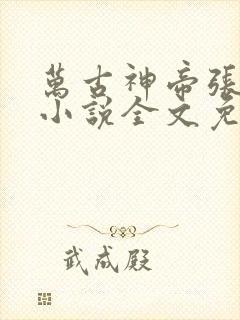 萬古神帝張
小説全文免
武成殿